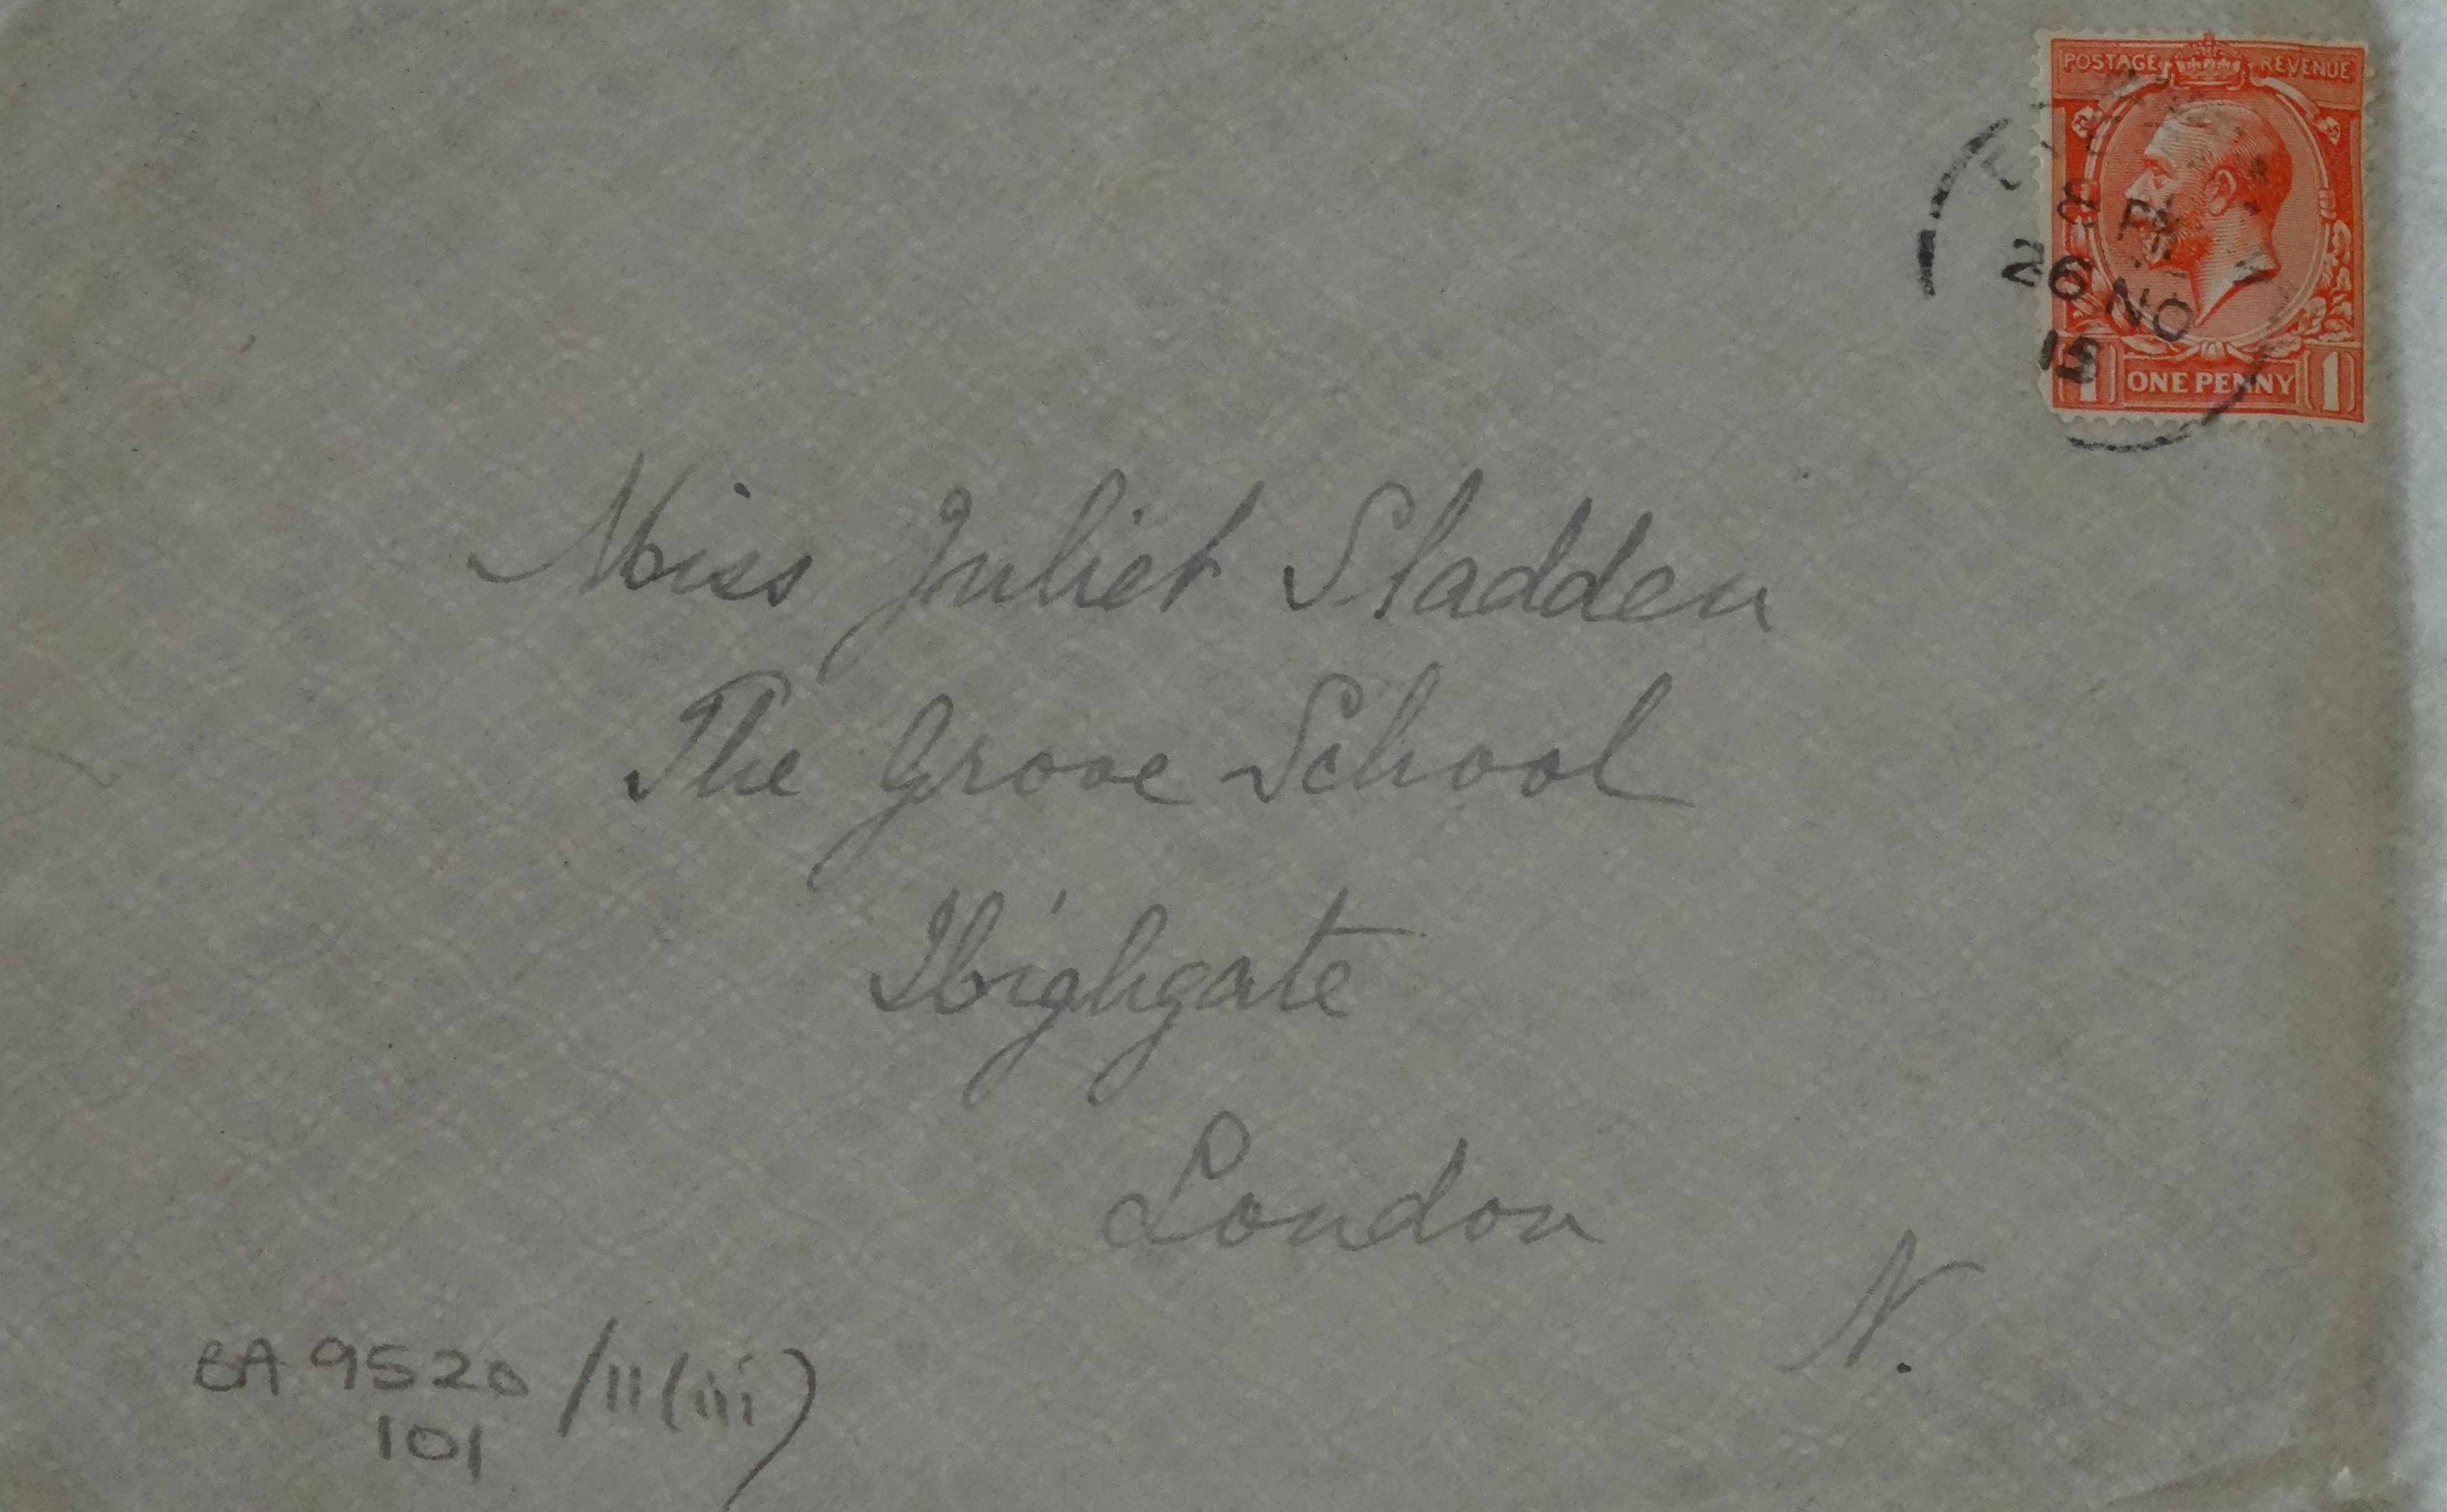 POSTAGE REVENUE
8 PM
26 NO
15
1 ONE PENNY 1
Miss Juliet Sladden
The Grove School
Highgate
London
N.
BA 9520/11(iii)
101